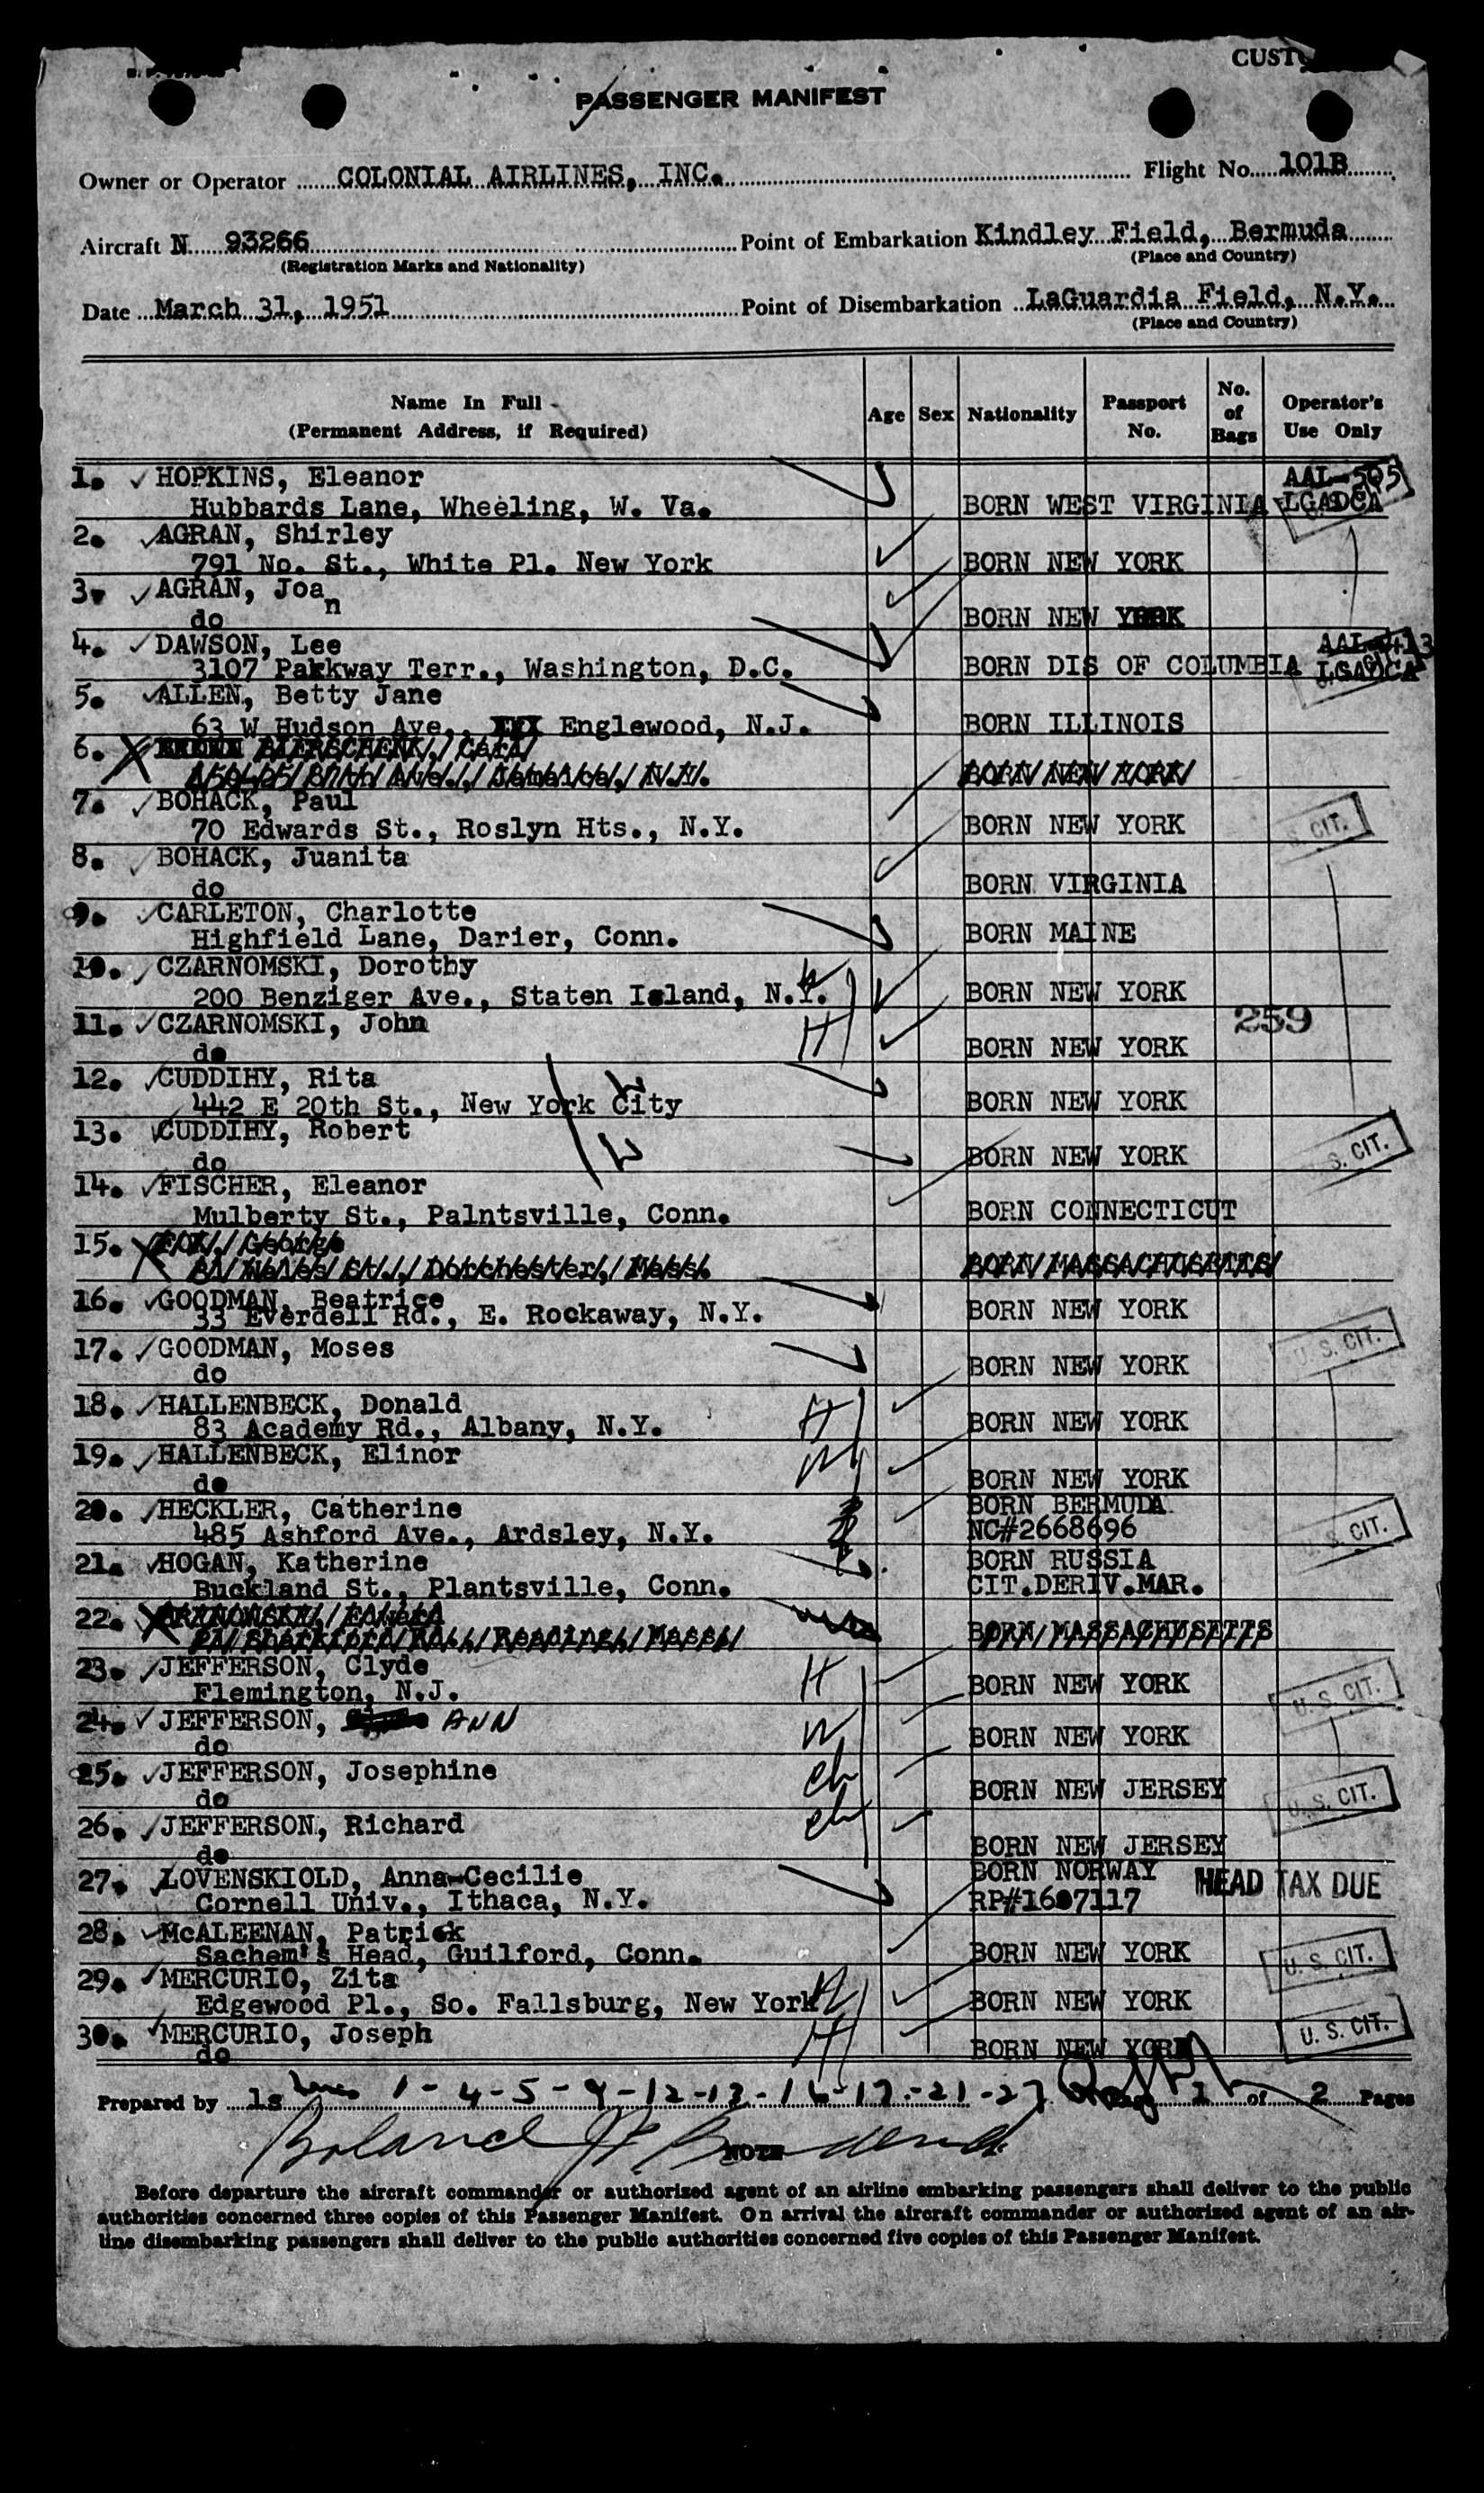 CUSTO
PASSENGER MANIFEST
Owner or Operator COLONIAL AIRLINES, INC. Flight No. 101B
Aircraft N 93266 Point of Embarkation Kindley Field, Bermuda
(Registration Marks and Nationality) (Place and Country)
Date March 31, 1951 Point of Disembarkation LaGuardia Field, N.Y.
(Place and Country)
Name In Full (Permanent Address, if Required) Age Sex Nationality Passport No. No. of Bags Operator's Use Only
1. HOPKINS, Eleanor AAL-505
Hubbards Lane, Wheeling, W. Va. BORN WEST VIRGINIA LGADCA
2. AGRAN, Shirley
791 No. St., White Pl. New York BORN NEW YORK
3. AGRAN, Joan
do BORN NEW YORK
4. DAWSON, Lee AAL-413
3107 Pakkway Terr., Washington, D.C. BORN DIS OF COLUMBIA LGADCA
5. ALLEN, Betty Jane
63 W Hudson Ave., Englewood, N.J. BORN ILLINOIS
6. BIERSCHENK, Carl
Ave., Jamaica, N.Y. BORN NEW YORK
7. BOHACK, Paul
70 Edwards St., Roslyn Hts., N.Y. BORN NEW YORK S. CIT.
8. BOHACK, Juanita
do BORN VIRGINIA
9. CARLETON, Charlotte
Highfield Lane, Darier, Conn. BORN MAINE
10. CZARNOMSKI, Dorothy
200 Benziger Ave., Staten Island, N.Y. W BORN NEW YORK
11. CZARNOMSKI, John H 259
do BORN NEW YORK
12. CUDDIHY, Rita
442 E 20th St., New York City BORN NEW YORK
13. CUDDIHY, Robert
do BORN NEW YORK S. CIT.
14. FISCHER, Eleanor
Mulberty St., Palntsville, Conn. BORN CONNECTICUT
15. FOX, George
Wales St., Dorchester, Mass. BORN MASSACHUSETTS
16. GOODMAN, Beatrice
33 Everdell Rd., E. Rockaway, N.Y. BORN NEW YORK
17. GOODMAN, Moses U. S. CIT.
do BORN NEW YORK
18. HALLENBECK, Donald
83 Academy Rd., Albany, N.Y. H BORN NEW YORK
19. HALLENBECK, Elinor W
do BORN NEW YORK
20. HECKLER, Catherine BORN BERMUDA
485 Ashford Ave., Ardsley, N.Y. NC#2668696 U. S. CIT.
21. HOGAN, Katherine BORN RUSSIA
Buckland St., Plantsville, Conn. CIT.DERIV.MAR.
22. Rd., Reading, Mass. BORN MASSACHUSETTS
23. JEFFERSON, Clyde H
Flemington, N.J. BORN NEW YORK U. S. CIT.
24. JEFFERSON, ANN W
do BORN NEW YORK
25. JEFFERSON, Josephine ch
do BORN NEW JERSEY U. S. CIT.
26. JEFFERSON, Richard ch
do BORN NEW JERSEY
27. LOVENSKIOLD, Anna-Cecilie BORN NORWAY HEAD TAX DUE
Cornell Univ., Ithaca, N.Y. RP#1607117
28. McALEENAN, Patrick
Sachem's Head, Guilford, Conn. BORN NEW YORK U. S. CIT.
29. MERCURIO, Zita
Edgewood Pl., So. Fallsburg, New York W BORN NEW YORK
30. MERCURIO, Joseph H U. S. CIT.
do BORN NEW YORK
Prepared by ls 1-4-5-9-12-13-16-17-21-27 Page 1 of 2 Pages
NOTE
Before departure the aircraft commander or authorized agent of an airline embarking passengers shall deliver to the public
authorities concerned three copies of this Passenger Manifest. On arrival the aircraft commander or authorized agent of an air-
line disembarking passengers shall deliver to the public authorities concerned five copies of this Passenger Manifest.